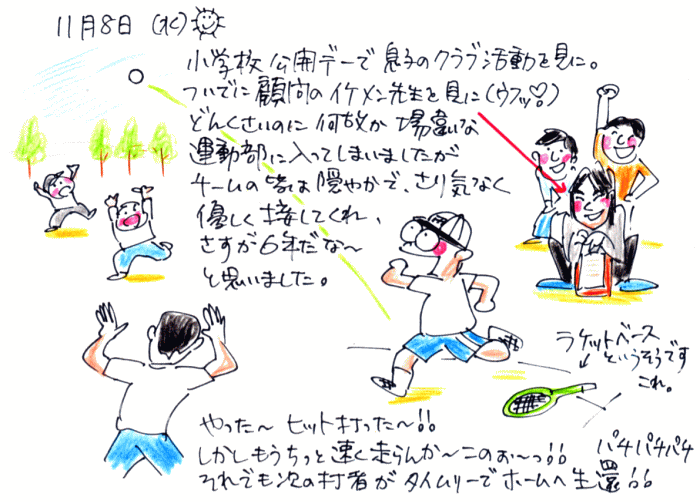 11月8日(水)
小学校公開デーで息子のクラブ活動を見に。
ついでに顧問のイケメン先生を見に(ウフッ♡)
どんくさいのに何故か場違いな
運動部に入ってしまいましたが
チームの皆は穏やかで、さり気なく
優しく接してくれ、
さすが6年だな〜
と思いました。
ラケットベース
というそうです
これ。
やった〜ヒット打った〜!!
しかしもうちっと速く走らんか〜このぉ〜っ!!
それでも次の打者がタイムリーでホームへ生還!!
パチパチパチ